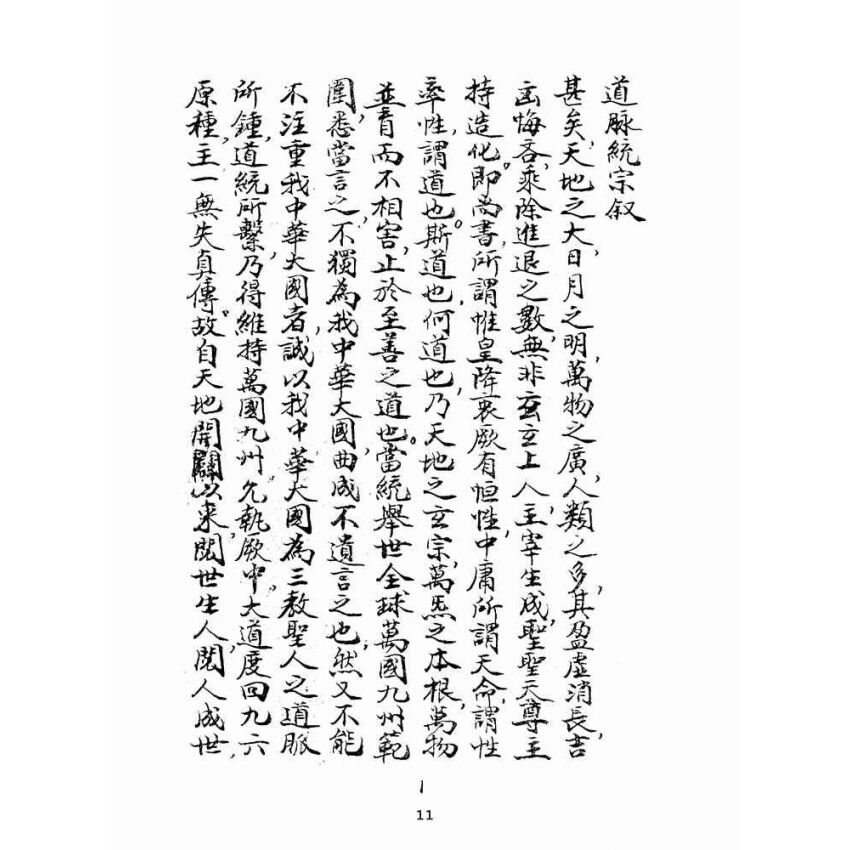 道脈統宗叙
甚矣,天地之大,日月之明,萬物之廣,人類之多,其盈虛消長,吉
凶悔吝,乘除進退之數,無非玄玄上人,主宰生成,聖聖天尊主
持造化。即尚書,所謂惟皇降衷,厥有恒性,中庸所謂天命,謂性
率性,謂道也。斯道也,何道也,乃天地之玄宗,萬炁之本根,萬物
並育而不相害,止於至善之道也。當統舉世全球,萬國九州,範
圍,悉當言之,不獨為我中華大國曲成不遺言之也,然又不能
不注重我中華大國者,誠以我中華大國為三教聖人之道脈
所鍾,道統所繫,乃得維持萬國九州,允執厥中,大道度回九六
原種,主一無失真傳。故自天地開闢以來,閱世生人,閱人成世,
1
11